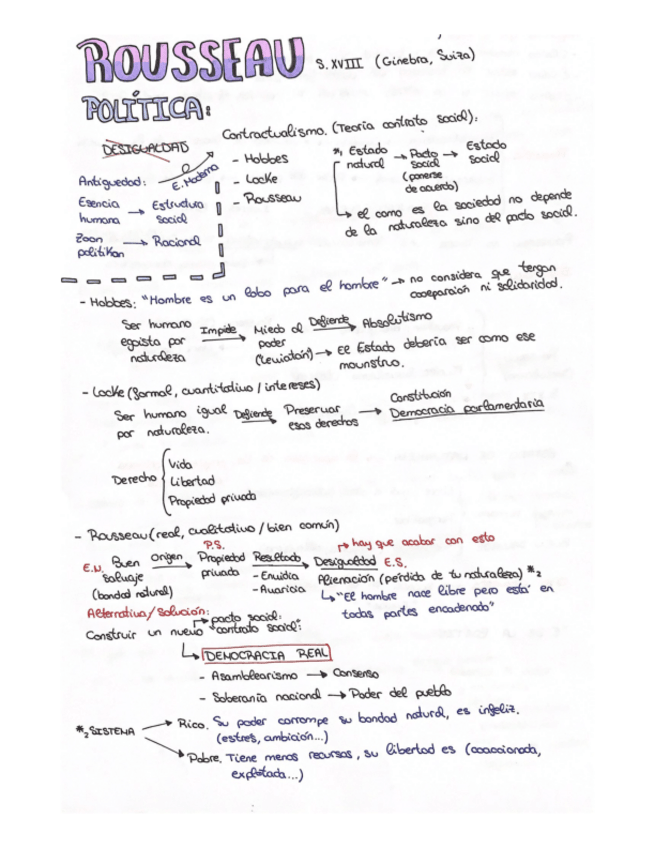 ROUSSEAU S. XVIII (Ginebra, Suiza)
POLÍTICA:
Contractualismo. (Teoría contrato social):
DESIGUALDAD
Antiguedad: E. Moderna
Esencia humana → Estructura social
Zoon politikon → Racional
- Hobbes
- Locke
- Rousseau
*1 Estado natural → Pacto social (ponerse de acuerdo) → Estado social
↳ el como es la sociedad no depende
de la naturaleza sino del pacto social.
- Hobbes: "Hombre es un lobo para el hombre" → no considera que tengan
cooeperación ni solidaridad.
Ser humano egoista por naturaleza Impide → Miedo al poder (Leviatán) Defiende → Absolutismo
→ El Estado debería ser como ese
mounstruo.
- Locke (formal, cuantitativo / intereses)
Ser humano igual por naturaleza. Defiende → Preservar esos derechos → Constitución
Democracia parlamentaria
Derecho
Vida
Libertad
Propiedad privada
- Rousseau (real, cualitativo / bien común)
P.S. ↱ hay que acabar con esto
E.N. Buen salvaje (bondad natural) Origen → Propiedad privada Resultado → Desigualdad E.S.
- Envidia
- Avaricia
Alienación (pérdida de tu naturaleza) *2
↳ "El hombre nace libre pero está en
todas partes encadenado"
Alternativa/Solución:
↱ pacto social:
Construir un nuevo "contrato social":
↳ DEMOCRACIA REAL
- Asamblearismo → Consenso
- Soberanía nacional → Poder del pueblo
*2 SISTEMA
→ Rico. Su poder corrompe su bondad natural, es infeliz.
(estrés, ambición...)
→ Pobre. Tiene menos recursos, su libertad es (coaccionada,
explotada...)